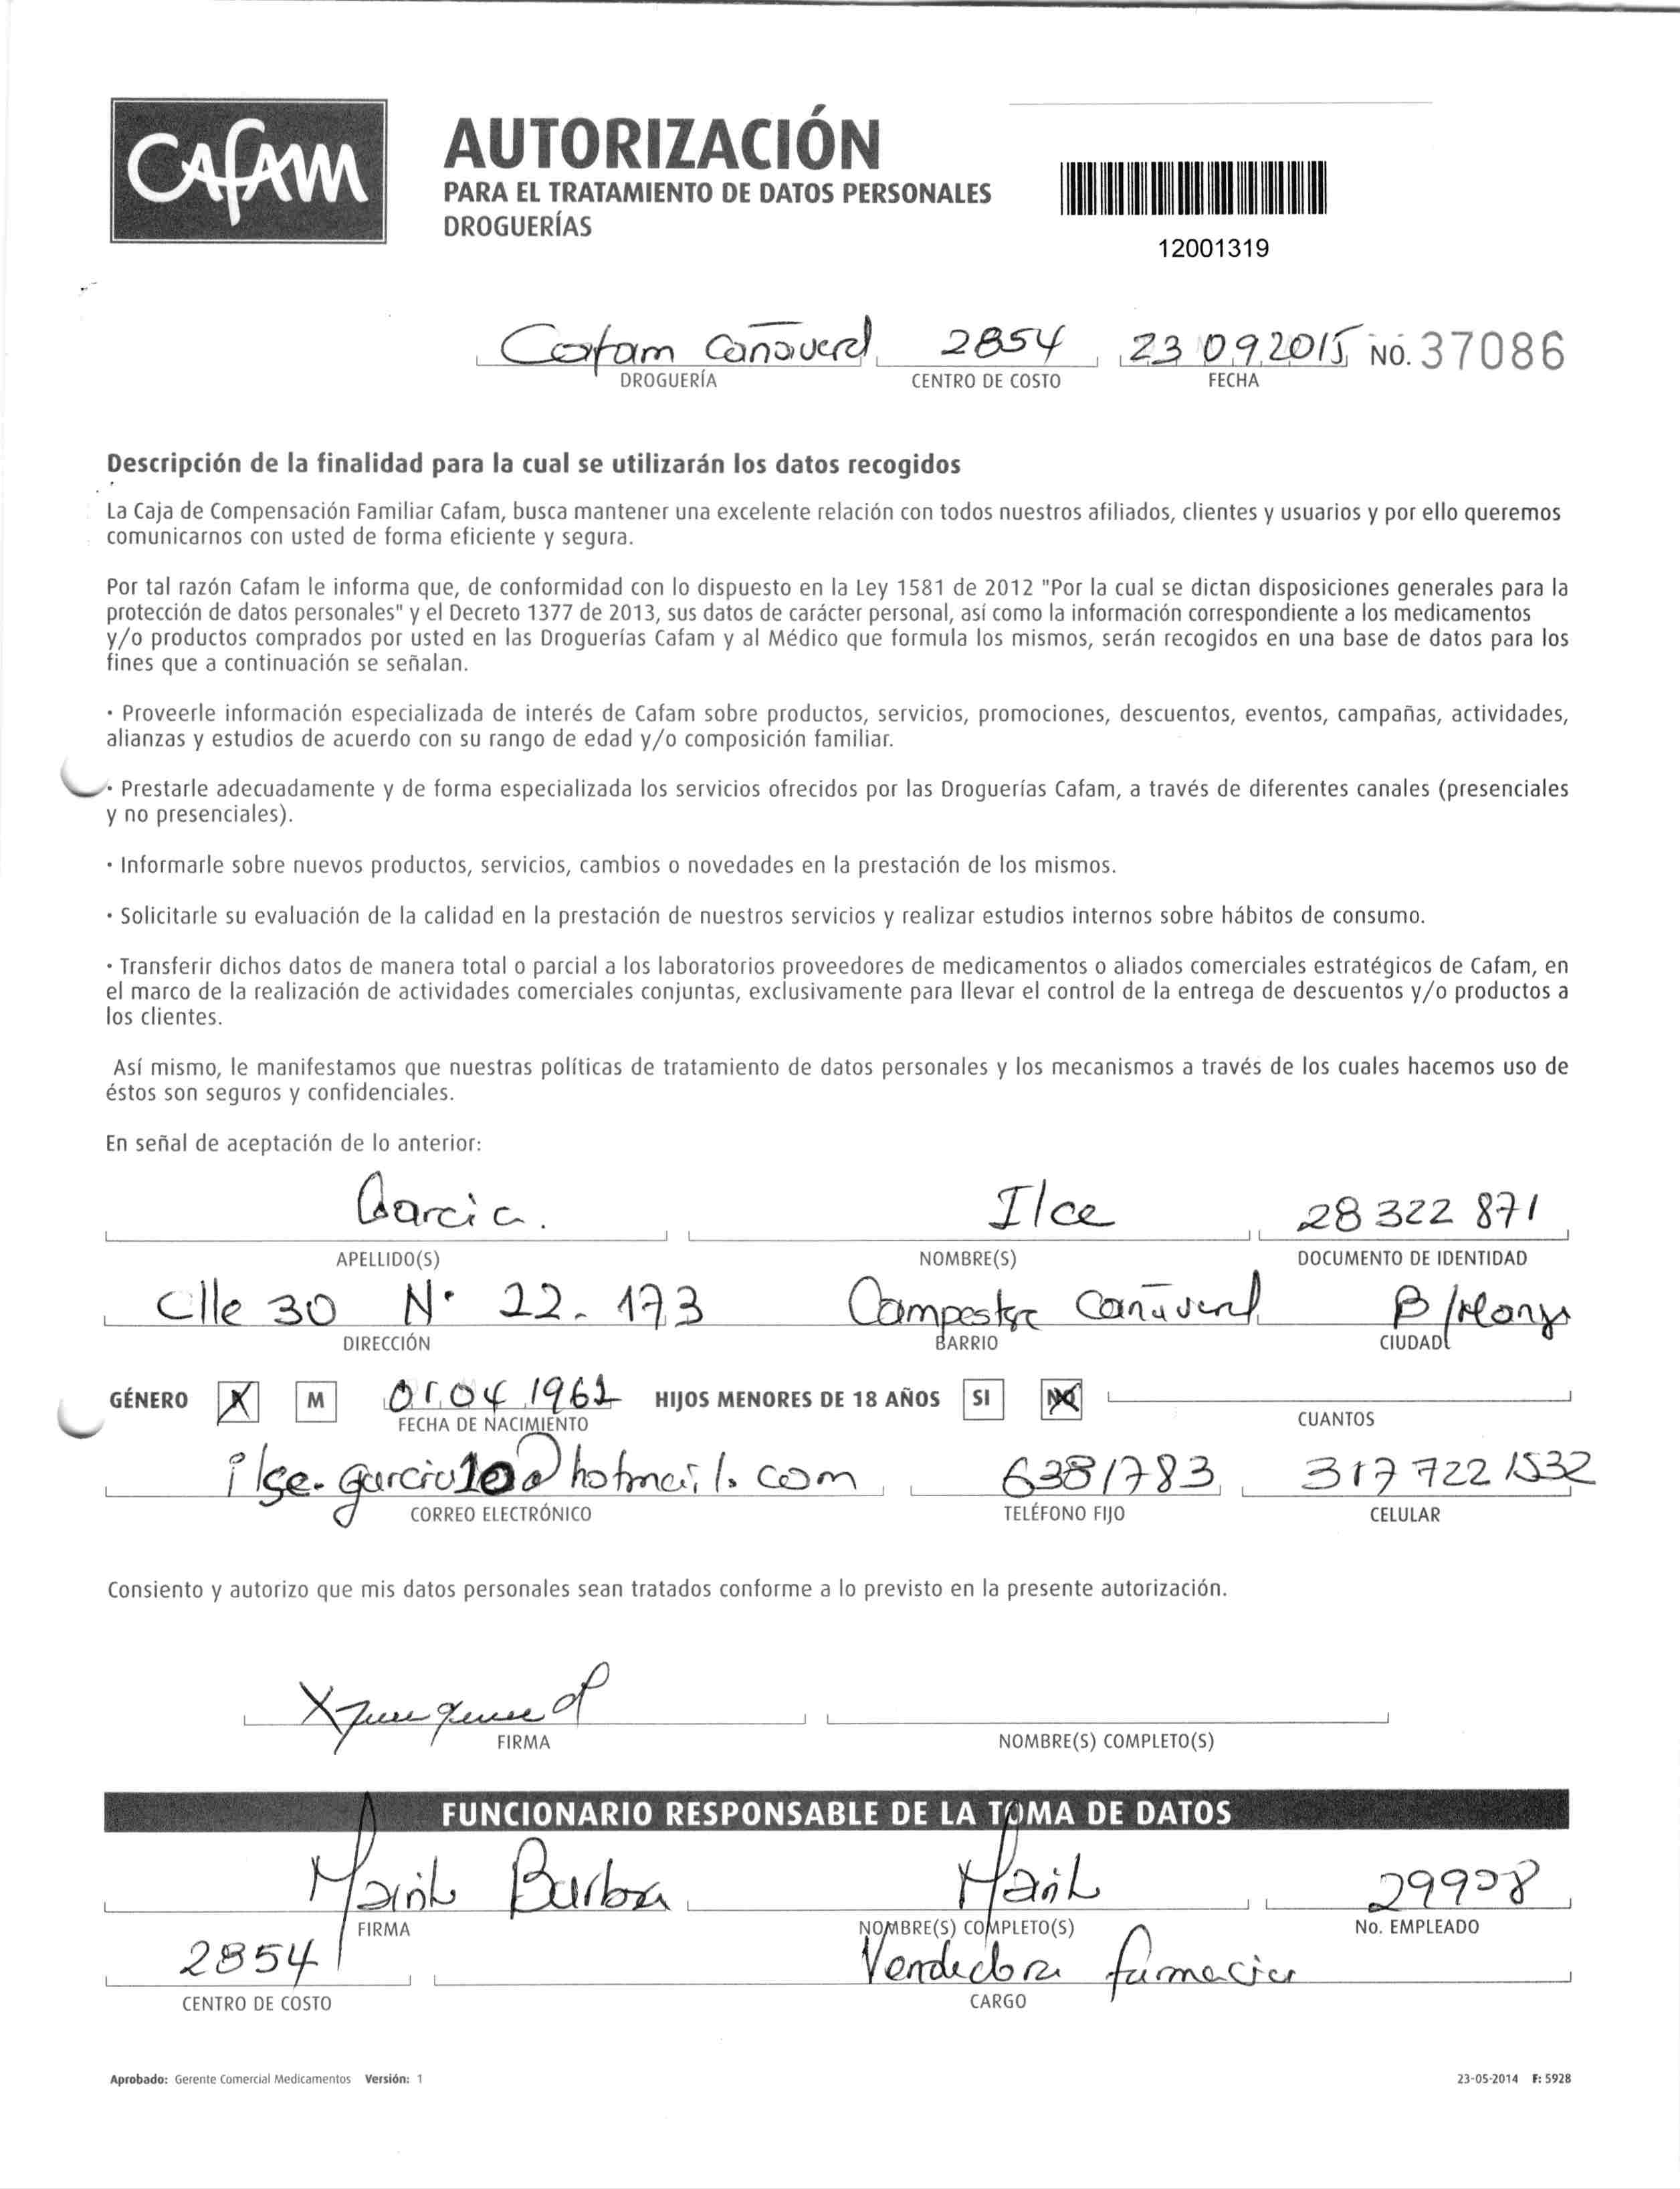 CAFAM
AUTORIZACIÓN
PARA EL TRATAMIENTO DE DATOS PERSONALES
DROGUERÍAS
12001319
Cafam Cañaveral 2854 23 09 2015 NO. 37086
DROGUERÍA CENTRO DE COSTO FECHA
Descripción de la finalidad para la cual se utilizarán los datos recogidos
La Caja de Compensación Familiar Cafam, busca mantener una excelente relación con todos nuestros afiliados, clientes y usuarios y por ello queremos
comunicarnos con usted de forma eficiente y segura.
Por tal razón Cafam le informa que, de conformidad con lo dispuesto en la Ley 1581 de 2012 "Por la cual se dictan disposiciones generales para la
protección de datos personales" y el Decreto 1377 de 2013, sus datos de carácter personal, así como la información correspondiente a los medicamentos
y/o productos comprados por usted en las Droguerías Cafam y al Médico que formula los mismos, serán recogidos en una base de datos para los
fines que a continuación se señalan.
· Proveerle información especializada de interés de Cafam sobre productos, servicios, promociones, descuentos, eventos, campañas, actividades,
alianzas y estudios de acuerdo con su rango de edad y/o composición familiar.
· Prestarle adecuadamente y de forma especializada los servicios ofrecidos por las Droguerías Cafam, a través de diferentes canales (presenciales
y no presenciales).
· Informarle sobre nuevos productos, servicios, cambios o novedades en la prestación de los mismos.
· Solicitarle su evaluación de la calidad en la prestación de nuestros servicios y realizar estudios internos sobre hábitos de consumo.
· Transferir dichos datos de manera total o parcial a los laboratorios proveedores de medicamentos o aliados comerciales estratégicos de Cafam, en
el marco de la realización de actividades comerciales conjuntas, exclusivamente para llevar el control de la entrega de descuentos y/o productos a
los clientes.
Así mismo, le manifestamos que nuestras políticas de tratamiento de datos personales y los mecanismos a través de los cuales hacemos uso de
éstos son seguros y confidenciales.
En señal de aceptación de lo anterior:
Garcia. Ilce 28 322 871
APELLIDO(S) NOMBRE(S) DOCUMENTO DE IDENTIDAD
Clle 30 N· 22-173 Campestre Cañaveral B/Manga
DIRECCIÓN BARRIO CIUDAD
GÉNERO X M 01 04 1961 HIJOS MENORES DE 18 AÑOS SI NO
FECHA DE NACIMIENTO CUANTOS
ilse-garcia10@hotmail.com 6381783 317 722 1532
CORREO ELECTRÓNICO TELÉFONO FIJO CELULAR
Consiento y autorizo que mis datos personales sean tratados conforme a lo previsto en la presente autorización.
X
FIRMA NOMBRE(S) COMPLETO(S)
FUNCIONARIO RESPONSABLE DE LA TOMA DE DATOS
Barbosa 29908
FIRMA NOMBRE(S) COMPLETO(S) No. EMPLEADO
2854 Vendedora farmacia
CENTRO DE COSTO CARGO
Aprobado: Gerente Comercial Medicamentos Versión: 1 23-05-2014 F: 5928